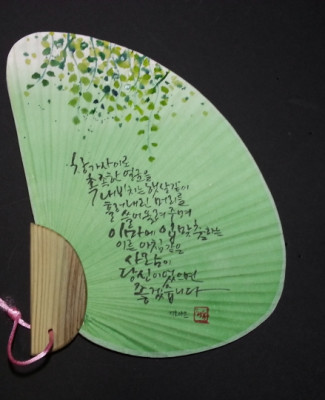 창가 사이로
촉촉한 얼굴을
내비치는 햇살같이
흘러내린 머리를
쓸어올려주며
이마에 입맞춤하는
이른 아침같은
사람이
당신이었으면
좋겠습니다